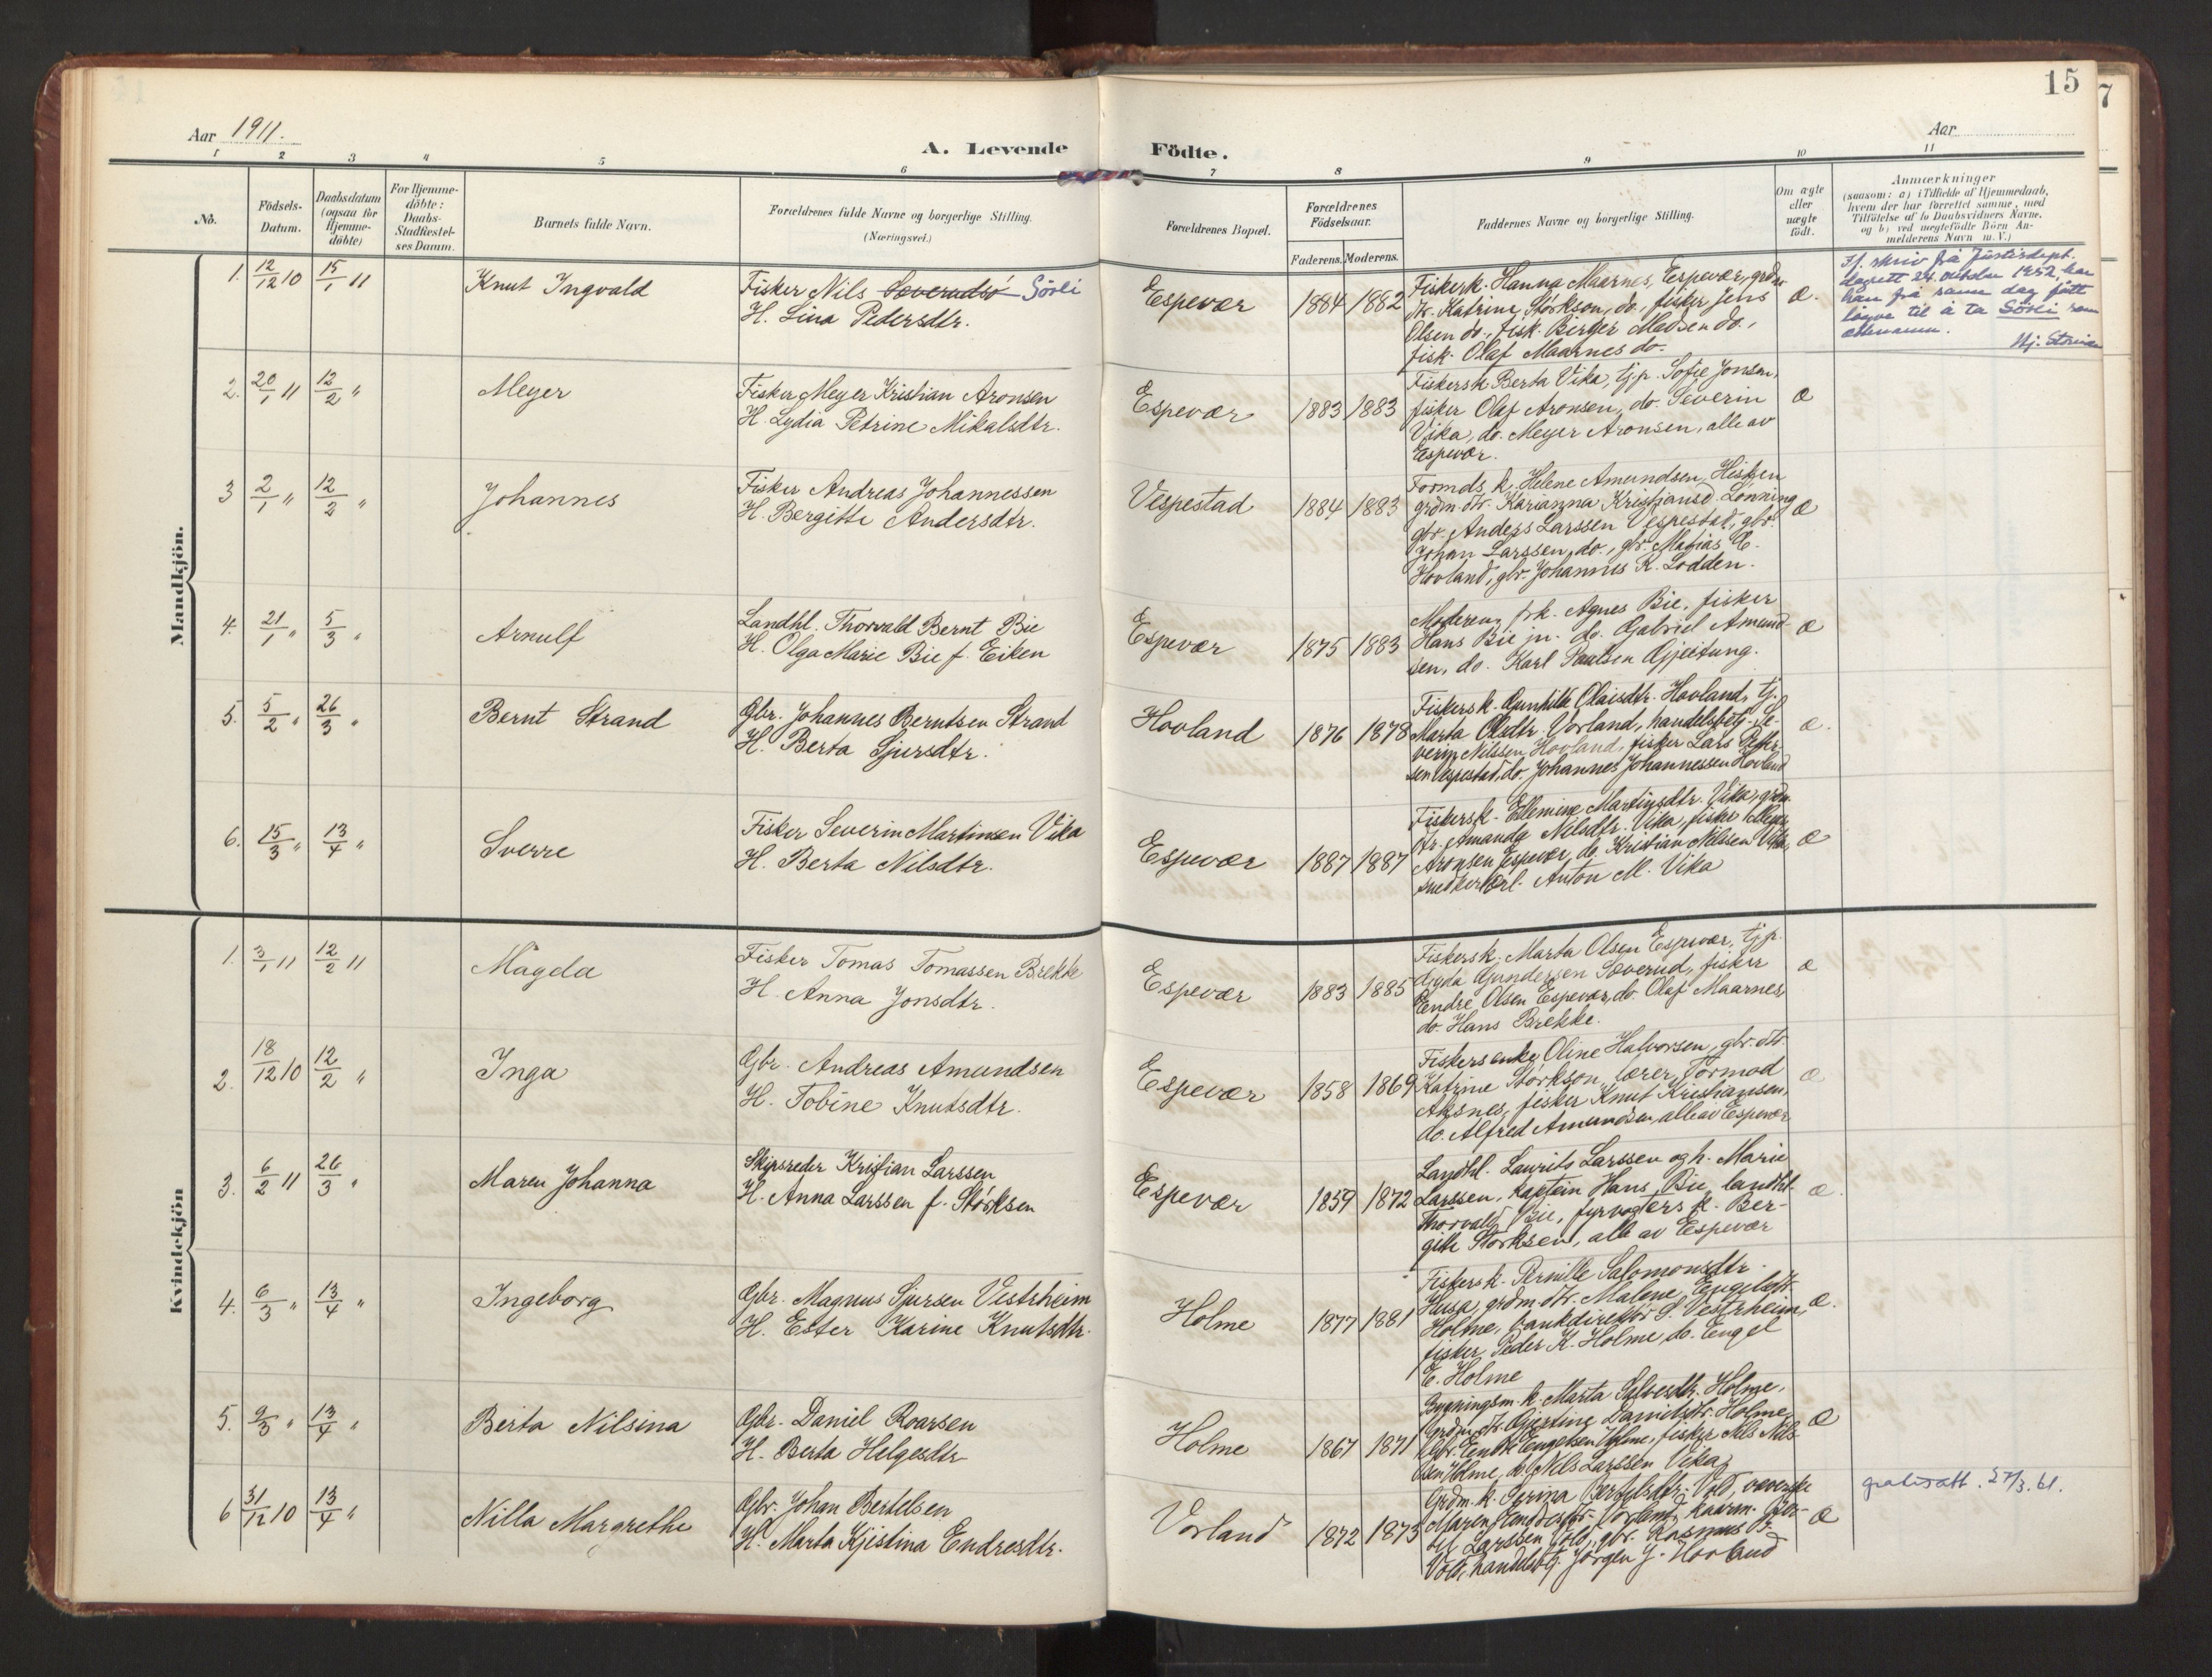 15
7
Aar 1911.
A. Levende Födte.
Aar
1 2 3 4 5 6 7 8 9 10 11
No.
Födsels-
Datum.
Daabsdatum
(ogsaa for
Hjemme-
döbte)
For Hjemme-
döbte:
Daabs-
Stadfæstel-
ses Datum.
Barnets fulde Navn.
Forældrenes fulde Navne og borgerlige Stilling.
(Næringsvei.)
Forældrenes Bopæl.
Forældrenes
Födselsaar.
Faderens. Moderens.
Faddernes Navne og borgerlige Stilling.
Om ægte
eller
uægte
födt.
Anmærkninger
(saasom: a) i Tilfælde af Hjemmedaab,
hvem der har forrettet samme, med
Tilföielse af to Daabsvidners Navne,
og b) ved uægtefödte Börn An-
melderens Navn m. V.)
Mandkjön.
1. 12/12 10 15/1 11
Knut Ingvald
Fisker Nils Sæveradsö Sörli
H. Lina Pedersdtr.
Espevær
1884 1882
Fiskerk. Hanna Maarnes, Espevær, grdm.
dtr. Katrine Störkson, do., fisker Jens
Olsen do., fisk. Birger Madsen do.,
fisk. Olaf Maarnes do.
æ.
Fj. skriv frå Justisdept.
dagsett 24. oktober 1952, har
han frå same dag fått
løyve til å ta Sörli som
ettenamn.
2. 20/1 11 12/2 "
Meyer
Fisker Meyer Kristian Aronsen
H. Lydia Petrine Mikalsdtr.
Espevær
1883 1883
Fiskersk Berta Vika, tj.p. Sofie Jonsen,
fisker Olaf Aronsen, do. Severin
Vika, do. Meyer Aronsen, alle av
Espevær.
æ
3 2/1 " 12/2 "
Johannes
Fisker Andreas Johannessen
H. Bergitte Andersdtr.
Vespestad
1884 1883
Formds. k. Helene Amundsen, Hisken
grdm. dtr. Karianna Kristiansd. Lönning
gbr. Anders Larssen Vespestad, gbr.
Johan Larssen, do., gbr. Matias E.
Hovland, gbr. Johannes R. Lodden.
æ
4. 21/1 " 5/3 "
Arnulf
Landhl. Thorvald Bernt Bie
H. Olga Marie Bie f. Eiken
Espevær
1875 1883
Moderen, frk. Agnes Bie, fisker
Hans Bie jn. do. Gabriel Amund-
sen, do. Karl Paulsen Gjeitung.
æ
5. 5/2 " 26/3 "
Bernt Strand
Gbr. Johannes Berntsen Strand
H. Berta Sjursdtr.
Hovland
1876 1878
Fiskersk. Gunhilde Olaisdtr. Hovland, tj.
Marta Olsdtr. Vorland, handelsbetj. Se-
verin Nilssen Hovland, fisker Lars Peder-
sen Vespestad, do. Johannes Johannessen Hovland
æ.
6. 15/3 " 13/4 "
Sverre
Fisker Severin Martinsen Vika
H. Berta Nilsdtr.
Espevær
1887 1887
Fiskersk. Ellemine Martinsdtr. Vika, grdm.
dtr. Amanda Nilsdtr. Vika, fisker Meyer
Aronsen Espevær, do. Kristian Nilssen Vika,
snedkerlærl. Anton M. Vika
æ
Kvindekjön
1. 3/1 11 12/2 11
Magda
Fisker Tomas Tomassen Brekke
H. Anna Jonsdtr.
Espevær
1883 1885
Fiskersk. Marta Olsen Espevær, tj.p.
Gundersen Sæverud, fisker
Endre Olsen Espevær, do. Olaf Maarnes,
do. Hans Brekke.
æ
2. 18/12 10 12/2 "
Inga
Gbr. Andreas Amundsen
H. Tobine Knutsdtr.
Espevær
1858 1869
Fiskers enke Oline Halvorsen, gbr. dtr.
Katrine Störkson, lærer Tormod
Aksnes, fisker Knut Kristiansen,
do. Alfred Amundsen, alle av Espevær
æ
3. 6/2 11 26/3 "
Maren Johanna
Skipsreder Kristian Larssen
H. Anna Larssen f. Störksen
Espevær
1859 1872
Landhl. Laurits Larssen og h. Marie
Larssen, kaptein Hans Bie, landhl.
Thorvald Bie, fyrvogters k. Ber-
gitte Störksen, alle av Espevær
æ.
4. 6/3 " 13/4 "
Ingeborg
Gbr. Magnus Sjursen Vestrheim
H. Ester Karine Knutsdtr.
Holme
1877 1881
Fiskersk. Pernille Salomonsdtr.
Husa, grdm. dtr. Malene Engelsdtr.
Holme, bankdirektör S. Vestrheim,
fisker Peder K. Holme, do. Engel
E. Holme
æ.
5. 9/3 " 13/4 "
Berta Nilsina
Gbr. Daniel Roarsen
H. Berta Helgesdtr
Holme
1867 1871
Bygningsm. k. Marta Selvesdtr. Holme,
Grdm. dtr. Gjertine Danielsdtr. Holme,
Gbr. Engelsen Holme, fisker Nils Nils-
sen Holme, do. Nils Larssen Vika
æ
6 31/12 10 13/4 "
Nilla Margrethe
Gbr. Johan Bertelsen
H. Marta Kjistina Endresdtr.
Vorland
1872 1873
Grdm. k. Serina Bertelsdtr. Vold, væverske
Maren Endresdtr. Vorland, kaarm. Ber-
tel Larssen Vold, gbr. Rasmus B.
Vold, handelsbtj. Jörgen J. Hovland
æ
gratisatt. 27/3. 61.